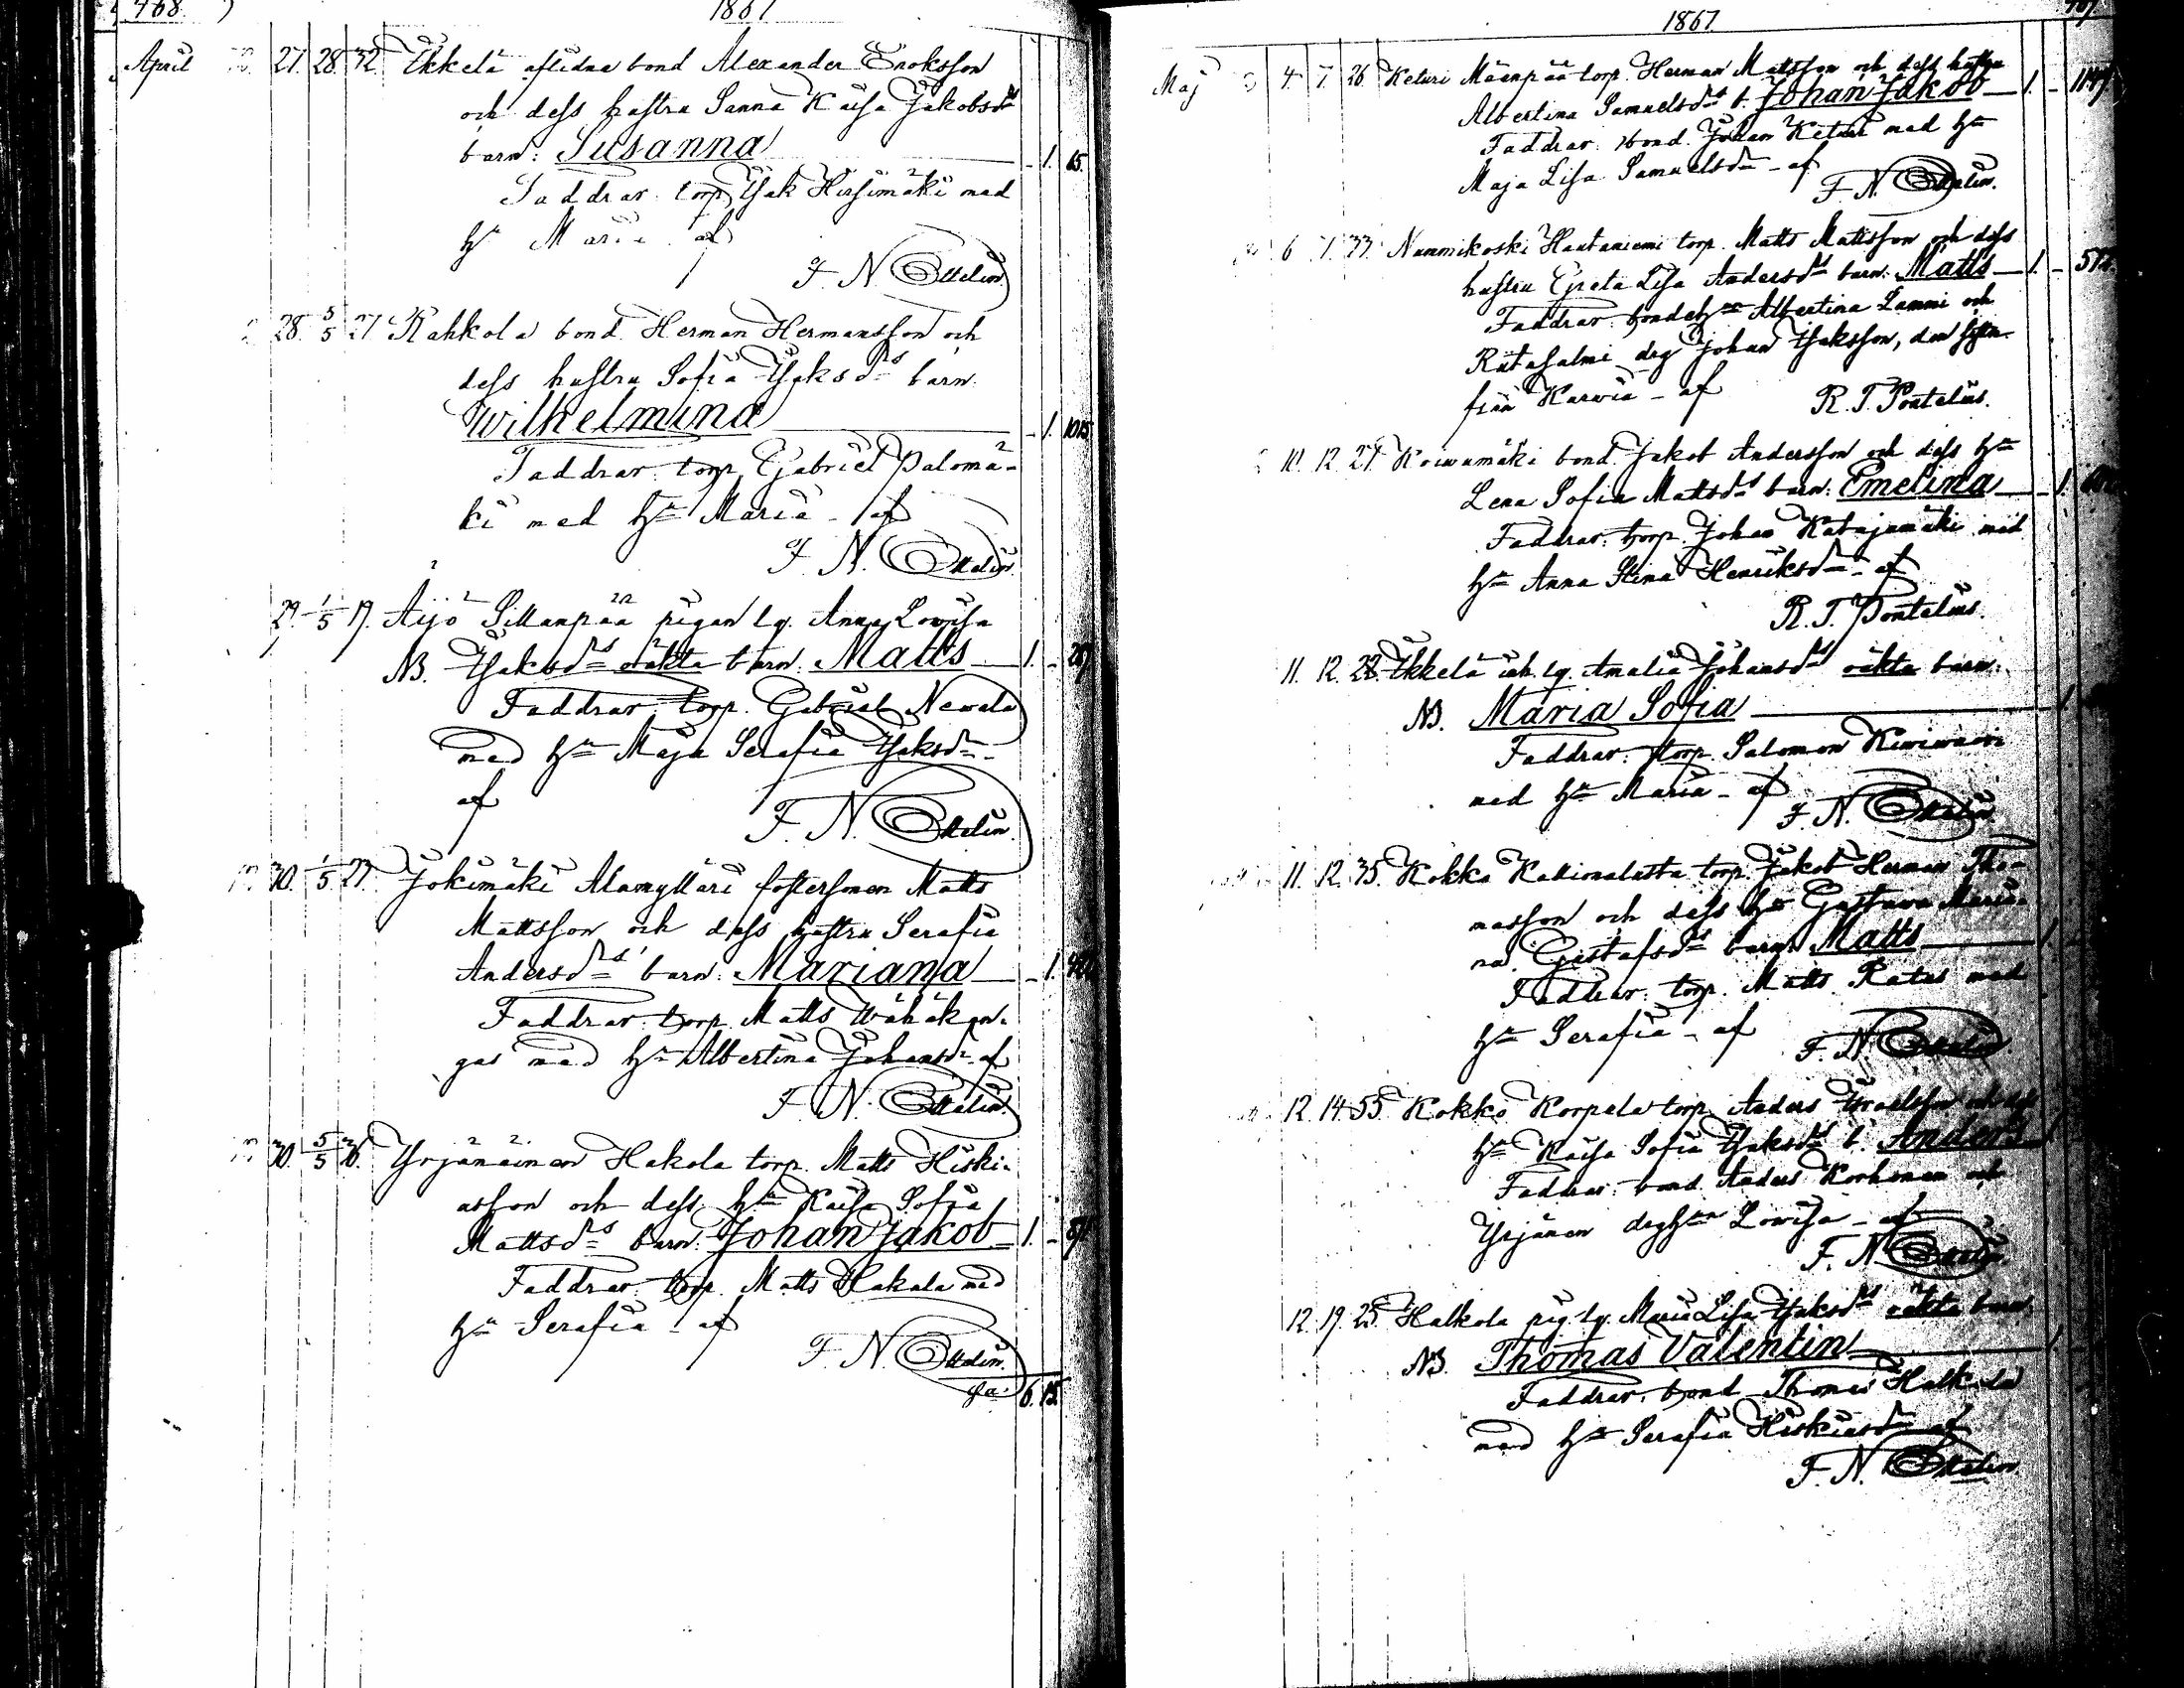 468
1867
April 27. 28. 32. Ikkelä aflidne bond Alexander Enoksson
och dess hustru Sanna Kaisa Jakobsdr
barn: Susanna 1. 65.
Faddrar: torp. Isak Hirsimäki med
hu Maria af
F. N. Ottelin.
28. 5/5 27 Rahkola bond. Herman Hermansson och
dess hustru Sofia Isaksdrs barn
Wilhelmina 1.
Faddrar: torp. Gabriel Palomä-
ki med hu Maria - af
F. N. Ottelin.
29. 1/5 19. Äijö Sillanpää pigan lg. Anna Lowisa
NB. Isaksdrs oäkta barn: Matts 1.
Faddrar: torp. Gabriel Newala
med hu Maja Serafia Isaksdr -
af
F. N. Ottelin.
30. 1/5 27. Jokimäki Alamylläri fostersonen Matts
Mattsson och dess hustru Serafia
Andersdrs barn: Mariana 1.
Faddrar: torp. Matts Wähäkan-
gas med hu Albertina Johansdr af
F. N. Ottelin.
30. 5/5 36. Yrjänäinen Hakola torp. Matts Hiski-
asson och dess hu Kaisa Sofia
Mattsdrs barn: Johan Jakob 1.
Faddrar: torp. Matts Hakala med
hu Serafia - af
F. N. Ottelin.
6. 15.
1867.
Maj 3 4. 7. 26. Keturi Mäenpää torp. Herman Mattsson och dess hustru
Albertina Samuelsdrs b. Johan Jakob 1.
Faddrar: bond. Johan Keturi med hu
Maja Lisa Samuelsdr - af
F. N. Ottelin.
6 7. 33. Nummikoski Hautaniemi torp. Matts Mattsson och dess
hustru Greta Lisa Andersdrs barn: Matts 1.
Faddrar: bondehu Albertina Lammi och
Riitasalmi drg Johan Isaksson, den
från Karwia - af
R. T. Pontelius.
10. 12. 27. Koiwumäki bond. Jakob Andersson och dess hu
Lena Sofia Mattsdrs barn: Emelina 1.
Faddrar: torp. Johan Katajamäki med
hu Anna Stina Henriksdr - af
R. T. Pontelius.
11. 12. 28. Ikkelä inh. lg. Amalia Johansdrs oäkta barn:
NB. Maria Sofia 1
Faddrar: torp. Salomon
med hu Maria - af
F. N. Ottelin.
11. 12. 35. Kokko torp. Jakob Herman Tho-
masson och dess hu Gustava Maria-
na Gustafsdrs barn: Matts 1
Faddrar: torp. Matts Ratas med
hu Serafia - af
F. N. Ottelin.
12. 14. 55. Kokko Korpela torp. Anders Israelsson och dess
hu Kaisa Sofia Isaksdrs b. Anders 1
Faddrar: bond. Anders Korhonen och
Yrjänen drghu Lowisa - af
F. N. Ottelin.
12. 19. 25. Halkola pig. lg. Maria Lisa Isaksdrs oäkta barn
NB. Thomas Valentin 1
Faddrar: bond Thomas Halkola
med hu Serafia Hiskiasdr af
F. N. Ottelin.